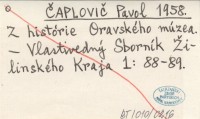 ČAPLOVIČ Pavol 1958.
Z histórie Oravského múzea.
– Vlastivedný Sborník Ži-
linského Kraja 1: 88-89.